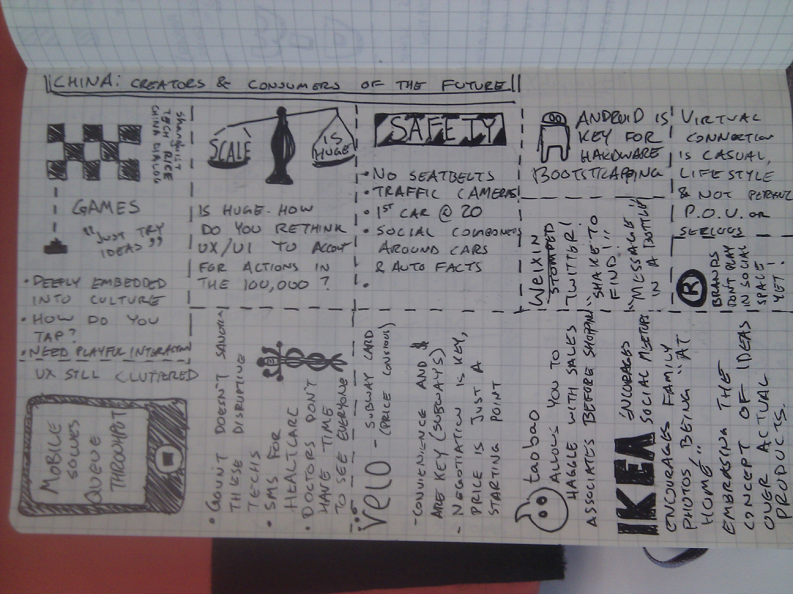 CHINA: CREATORS & CONSUMERS OF THE FUTURE
SHANGHIIT
TECH RICE
CHINA DIALOG
GAMES
"JUST TRY
IDEAS"
• DEEPLY EMBEDDED
INTO CULTURE
• HOW DO YOU
TAP?
• NEED PLAYFUL INTERACTION
UX STILL CLUTTERED
MOBILE
SOLVES
QUEUE
THROUGHPUT
SCALE
IS
HUGE
IS HUGE. HOW
DO YOU RETHINK
UX/UI TO
FOR ACTIONS IN
THE 100,000?
• GOV'NT DOESN'T SANCTION
THESE DISRUPTIVE
TECHS
• SMS FOR
HEALTCARE
• DOCTORS DON'T
HAVE TIME
TO SEE EVERYONE
SAFETY
• NO SEATBELTS
• TRAFFIC CAMERAS
• 1ST CAR @ 20
• SOCIAL COMPONENTS
AROUND CARS
& AUTO FACTS
•
VELO - SUBWAY CARD
(PRICE CONSIOUS)
- CONVINIENCE AND $
ARE KEY (SUBWAYS)
- NEGOTIATION IS KEY,
PRICE IS JUST A
STARTING POINT
ANDROID IS
KEY FOR
HARDWARE
BOOTSTRAPPING
WEIXIN
STOMPED
TWITTER!
SHAKE TO
FIND!!
"MESSAGE
IN A BOTTLE"
VIRTUAL
CONNECTION
IS CASUAL,
LIFESTYLE
& NOT
P.O.V. OR
SERIOUS
®
BRANDS
DON'T PLAY
IN SOCIAL
SPACE
YET!
taobao
ALLOWS YOU TO
HAGGLE WITH SALES
ASSOCIATES BEFORE SHOPPIN'
IKEA ENCORAGES
SOCIAL MEETUPS
ENCOURAGES FAMILY
PHOTOS BEING "AT
HOME".
EMBRASING THE
CONCEPT OF IDEAS
OVER ACTUAL
PRODUCTS.